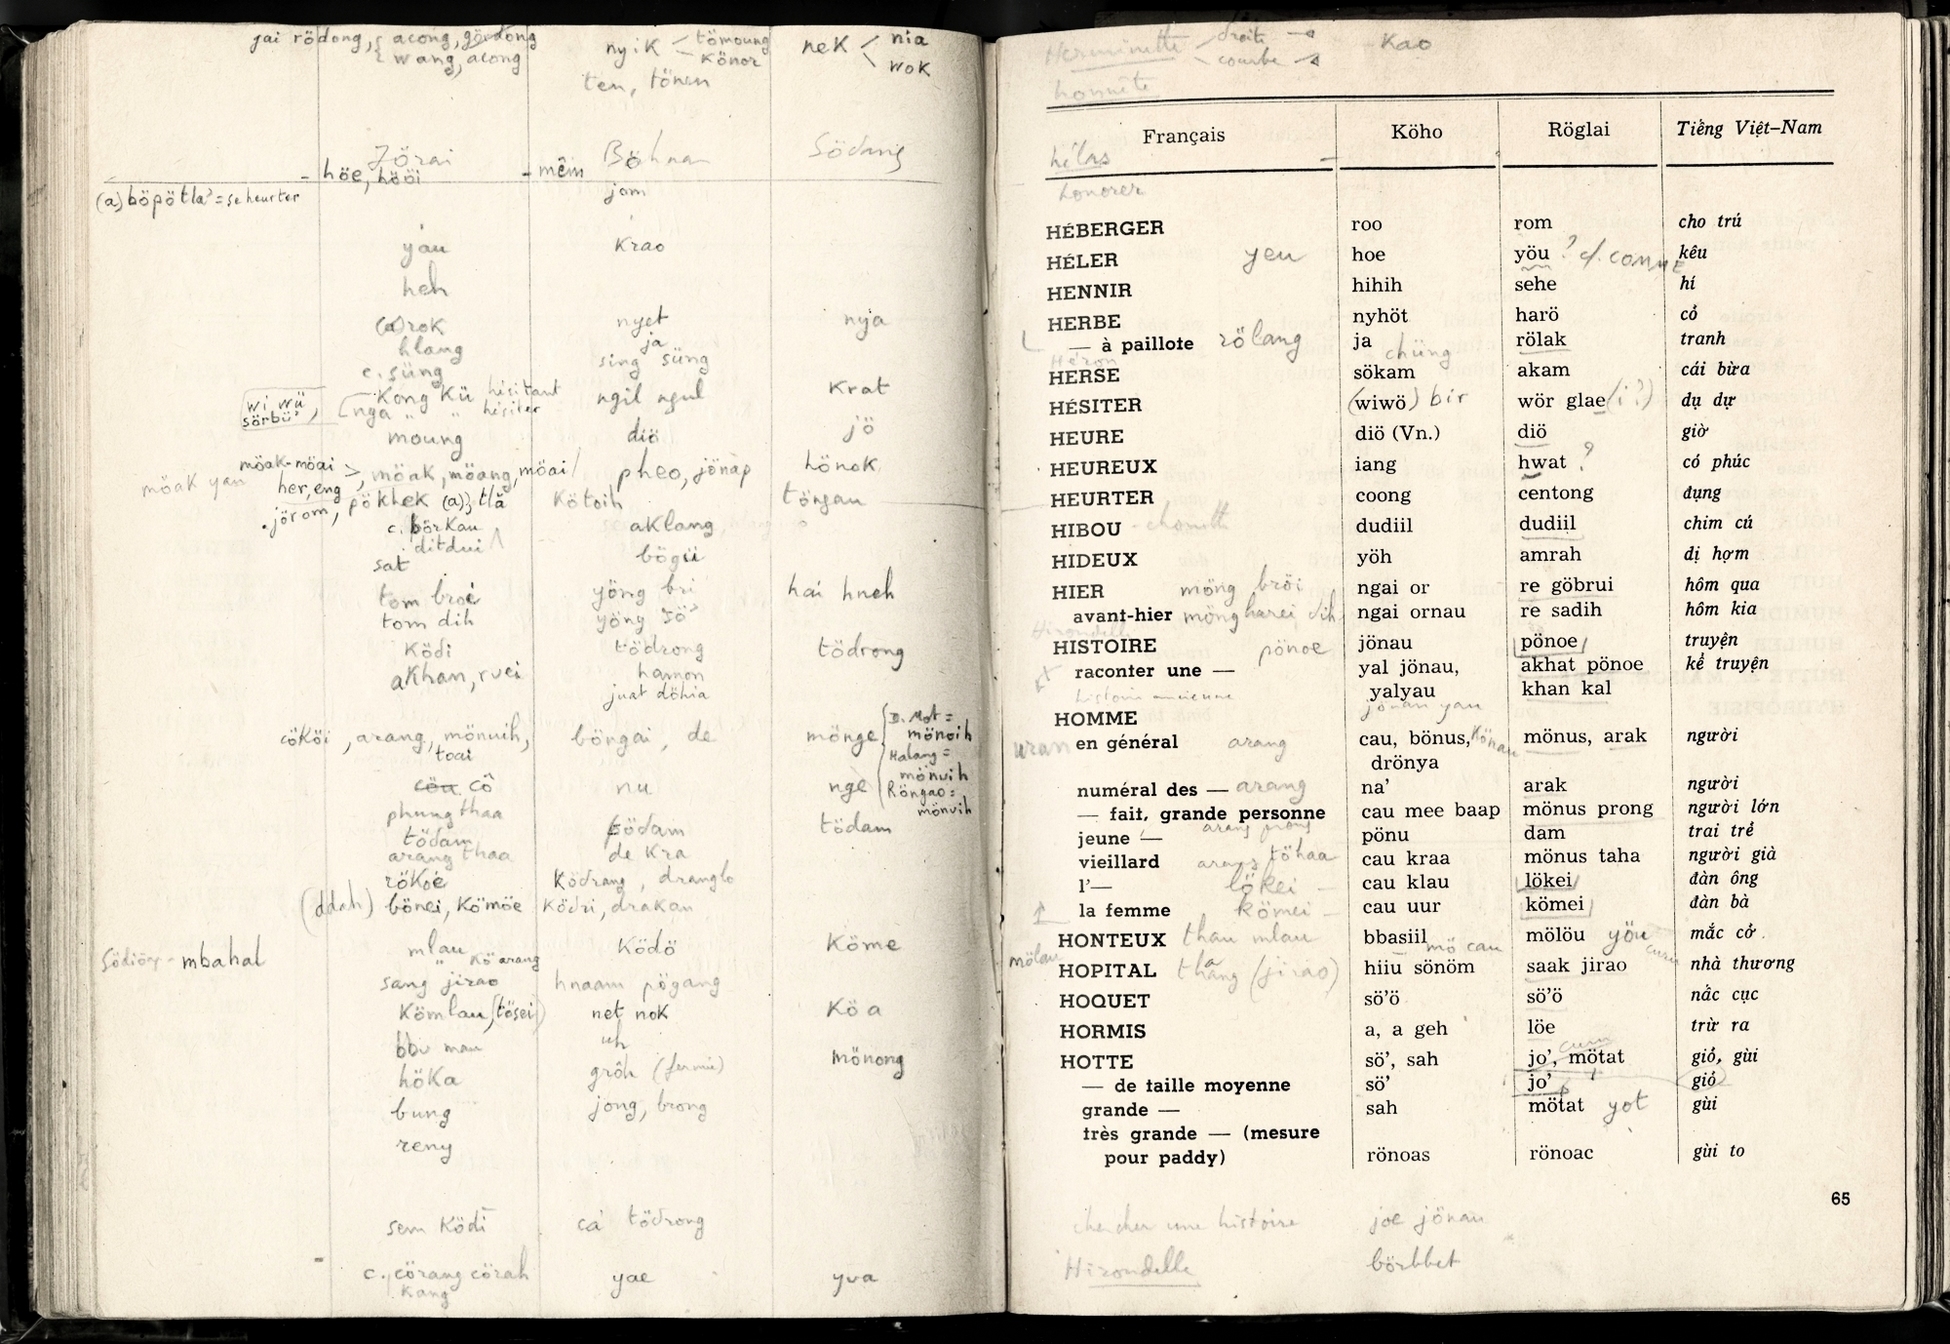 jai rödong, { acong, gördong
wang, acong
nyiK < tömoung
Könor
neK < nia
woK
ten, tönen
Jörai
Böhnar
Södang
- höe, hööi
- mêm
jom
(a) böpötla' = se heurter
yau
Krao
heh
(a)roK
nyet
nya
hlang
ja
c. süng
sing süng
wi wü,
sörbü'
Kong Kü hésitant
nga " " hésiter
ngil ngul
Krat
moung
diö
jö
möak-möai >, möak, möang, möai/
her, eng
möaK yan
pheo, jönap
hönoK
.jörom, pökheK (a); tlă
Kötoih
töngau
c. börKau
aKlang
ditdui
sat
bögü
tom broi
yöng bri
hai hneh
tom dih
yöng
Ködi
tödrong
tödrong
aKhan, ruei
hamon
juat döhia
cöKöi, arang, mönuih,
toai
böngai, de
mönge
D. Mot =
mönoih
Halang =
mönuih
Röngao =
mönuih
cöu cô
nu
nge
phung thaa
tödam
tödam
tödam
arang thaa
de Kra
röKoè
Ködrang, dranglo
(ddah) bönei, Kömöe
Ködri, drakan
Södiöng - mbahal
mlau
" Kö arang
Ködö
Köme
sang jirao
hnaam pögang
Kömlau, (tösei)
net nok
Kö a
bbu mau
uh
höKa
grôh (fermé)
mönong
bung
jong, brong
reny
sem Ködi
ca' tödrong
c. cörang cörah
Kang
yae
yua
Herminette < droite →
courbe →
Kao
honnête
Français Köho Röglai Tiếng Việt–Nam
hélas
honorer
HÉBERGER roo rom cho trú
HÉLER yeu hoe yöu ? cf. comme kêu
HENNIR hihih sehe hí
HERBE nyhöt harö cỏ
— à paillote rölang ja rölak tranh
Héron chüng
HERSE sökam akam cái bừa
HÉSITER (wiwö) bir wör glae (i?) dụ dự
HEURE diö (Vn.) diö giờ
HEUREUX iang hwat ? có phúc
HEURTER coong centong đụng
HIBOU - chouette dudiil dudiil chim cú
HIDEUX yöh amrah dị hợm
HIER möng bröi ngai or re göbrui hôm qua
avant-hier möng harei dih ngai ornau re sadih hôm kia
Hirondelle
HISTOIRE pönoe jönau pönoe truyện
raconter une — yal jönau, akhat pönoe kể truyện
yalyau khan kal
histoire ancienne jönau yau
HOMME
uran en général arang cau, bönus, Könau mönus, arak người
drönya
numéral des — arang na’ arak người
— fait, grande personne cau mee baap mönus prong người lớn
arang prong
jeune — pönu dam trai trẻ
vieillard arang töhaa cau kraa mönus taha người già
l’— lökei — cau klau lökei đàn ông
la femme kömei — cau uur kömei đàn bà
HONTEUX thau mlau bbasiil mö cau mölöu yöu mắc cở
mölau
HOPITAL thang (jirao) hiiu sönöm saak jirao nhà thương
HOQUET sö’ö sö’ö nấc cục
HORMIS a, a geh löe trừ ra
cum
HOTTE sö’, sah jo’, mötat giỏ, gùi
— de taille moyenne sö’ jo’ giỏ
grande — sah mötat yot gùi
très grande — (mesure
pour paddy) rönoas rönoac gùi to
65
chercher une histoire joe jönau
Hirondelle börbbet